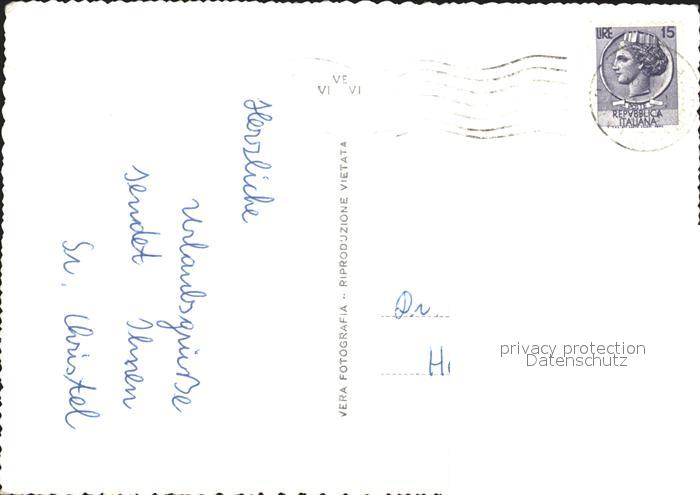 Herzliche
Urlaubsgrüße
sendet Ihnen
Sr. Christel
VE
VI VI
VERA FOTOGRAFIA - RIPRODUZIONE VIETATA
LIRE 15
POSTE
REPVBBLICA
ITALIANA
Dr.
privacy protection
Datenschutz